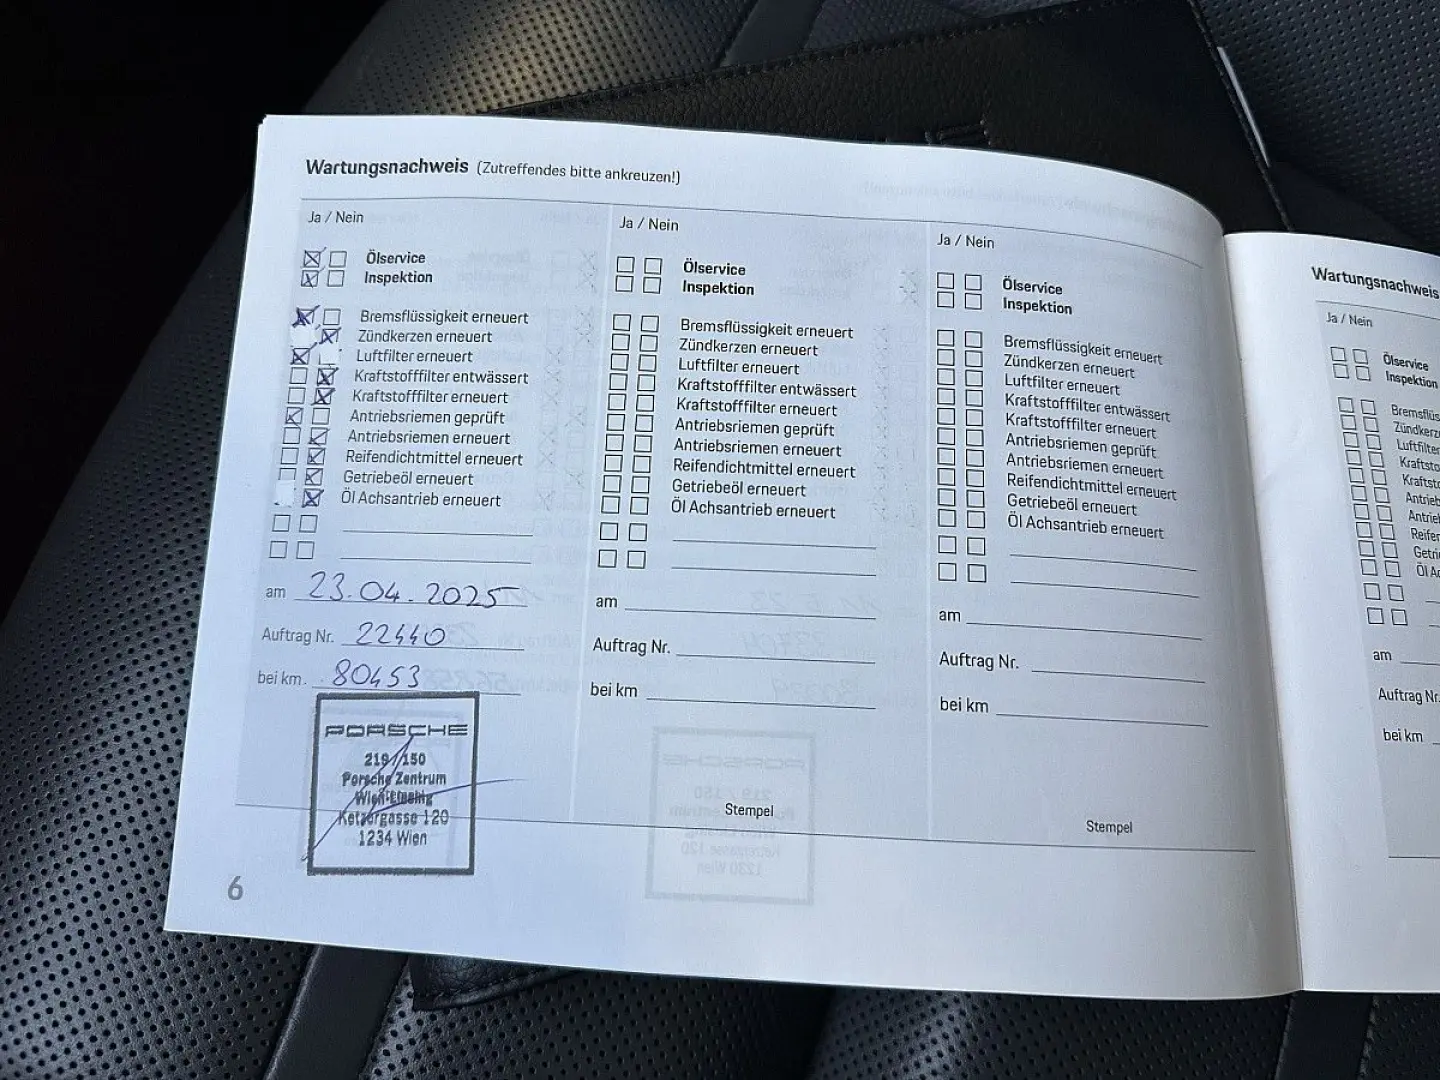 Wartungsnachweis (Zutreffendes bitte ankreuzen!)
Ja / Nein
Ölservice
Inspektion
Bremsflüssigkeit erneuert
Zündkerzen erneuert
Luftfilter erneuert
Kraftstofffilter entwässert
Kraftstofffilter erneuert
Antriebsriemen geprüft
Antriebsriemen erneuert
Reifendichtmittel erneuert
Getriebeöl erneuert
Öl Achsantrieb erneuert
am 23.04.2025
Auftrag Nr. 22440
bei km. 80453
PORSCHE
219 / 150
Porsche Zentrum
Wien-Liesing
Ketzergasse 120
1234 Wien
6
Ja / Nein
Ölservice
Inspektion
Bremsflüssigkeit erneuert
Zündkerzen erneuert
Luftfilter erneuert
Kraftstofffilter entwässert
Kraftstofffilter erneuert
Antriebsriemen geprüft
Antriebsriemen erneuert
Reifendichtmittel erneuert
Getriebeöl erneuert
Öl Achsantrieb erneuert
am
Auftrag Nr.
bei km
Stempel
Ja / Nein
Ölservice
Inspektion
Bremsflüssigkeit erneuert
Zündkerzen erneuert
Luftfilter erneuert
Kraftstofffilter entwässert
Kraftstofffilter erneuert
Antriebsriemen geprüft
Antriebsriemen erneuert
Reifendichtmittel erneuert
Getriebeöl erneuert
Öl Achsantrieb erneuert
am
Auftrag Nr.
bei km
Stempel
Wartungsnachweis
Ja / Nein
Ölservice
Inspektion
am
Auftrag Nr.
bei km